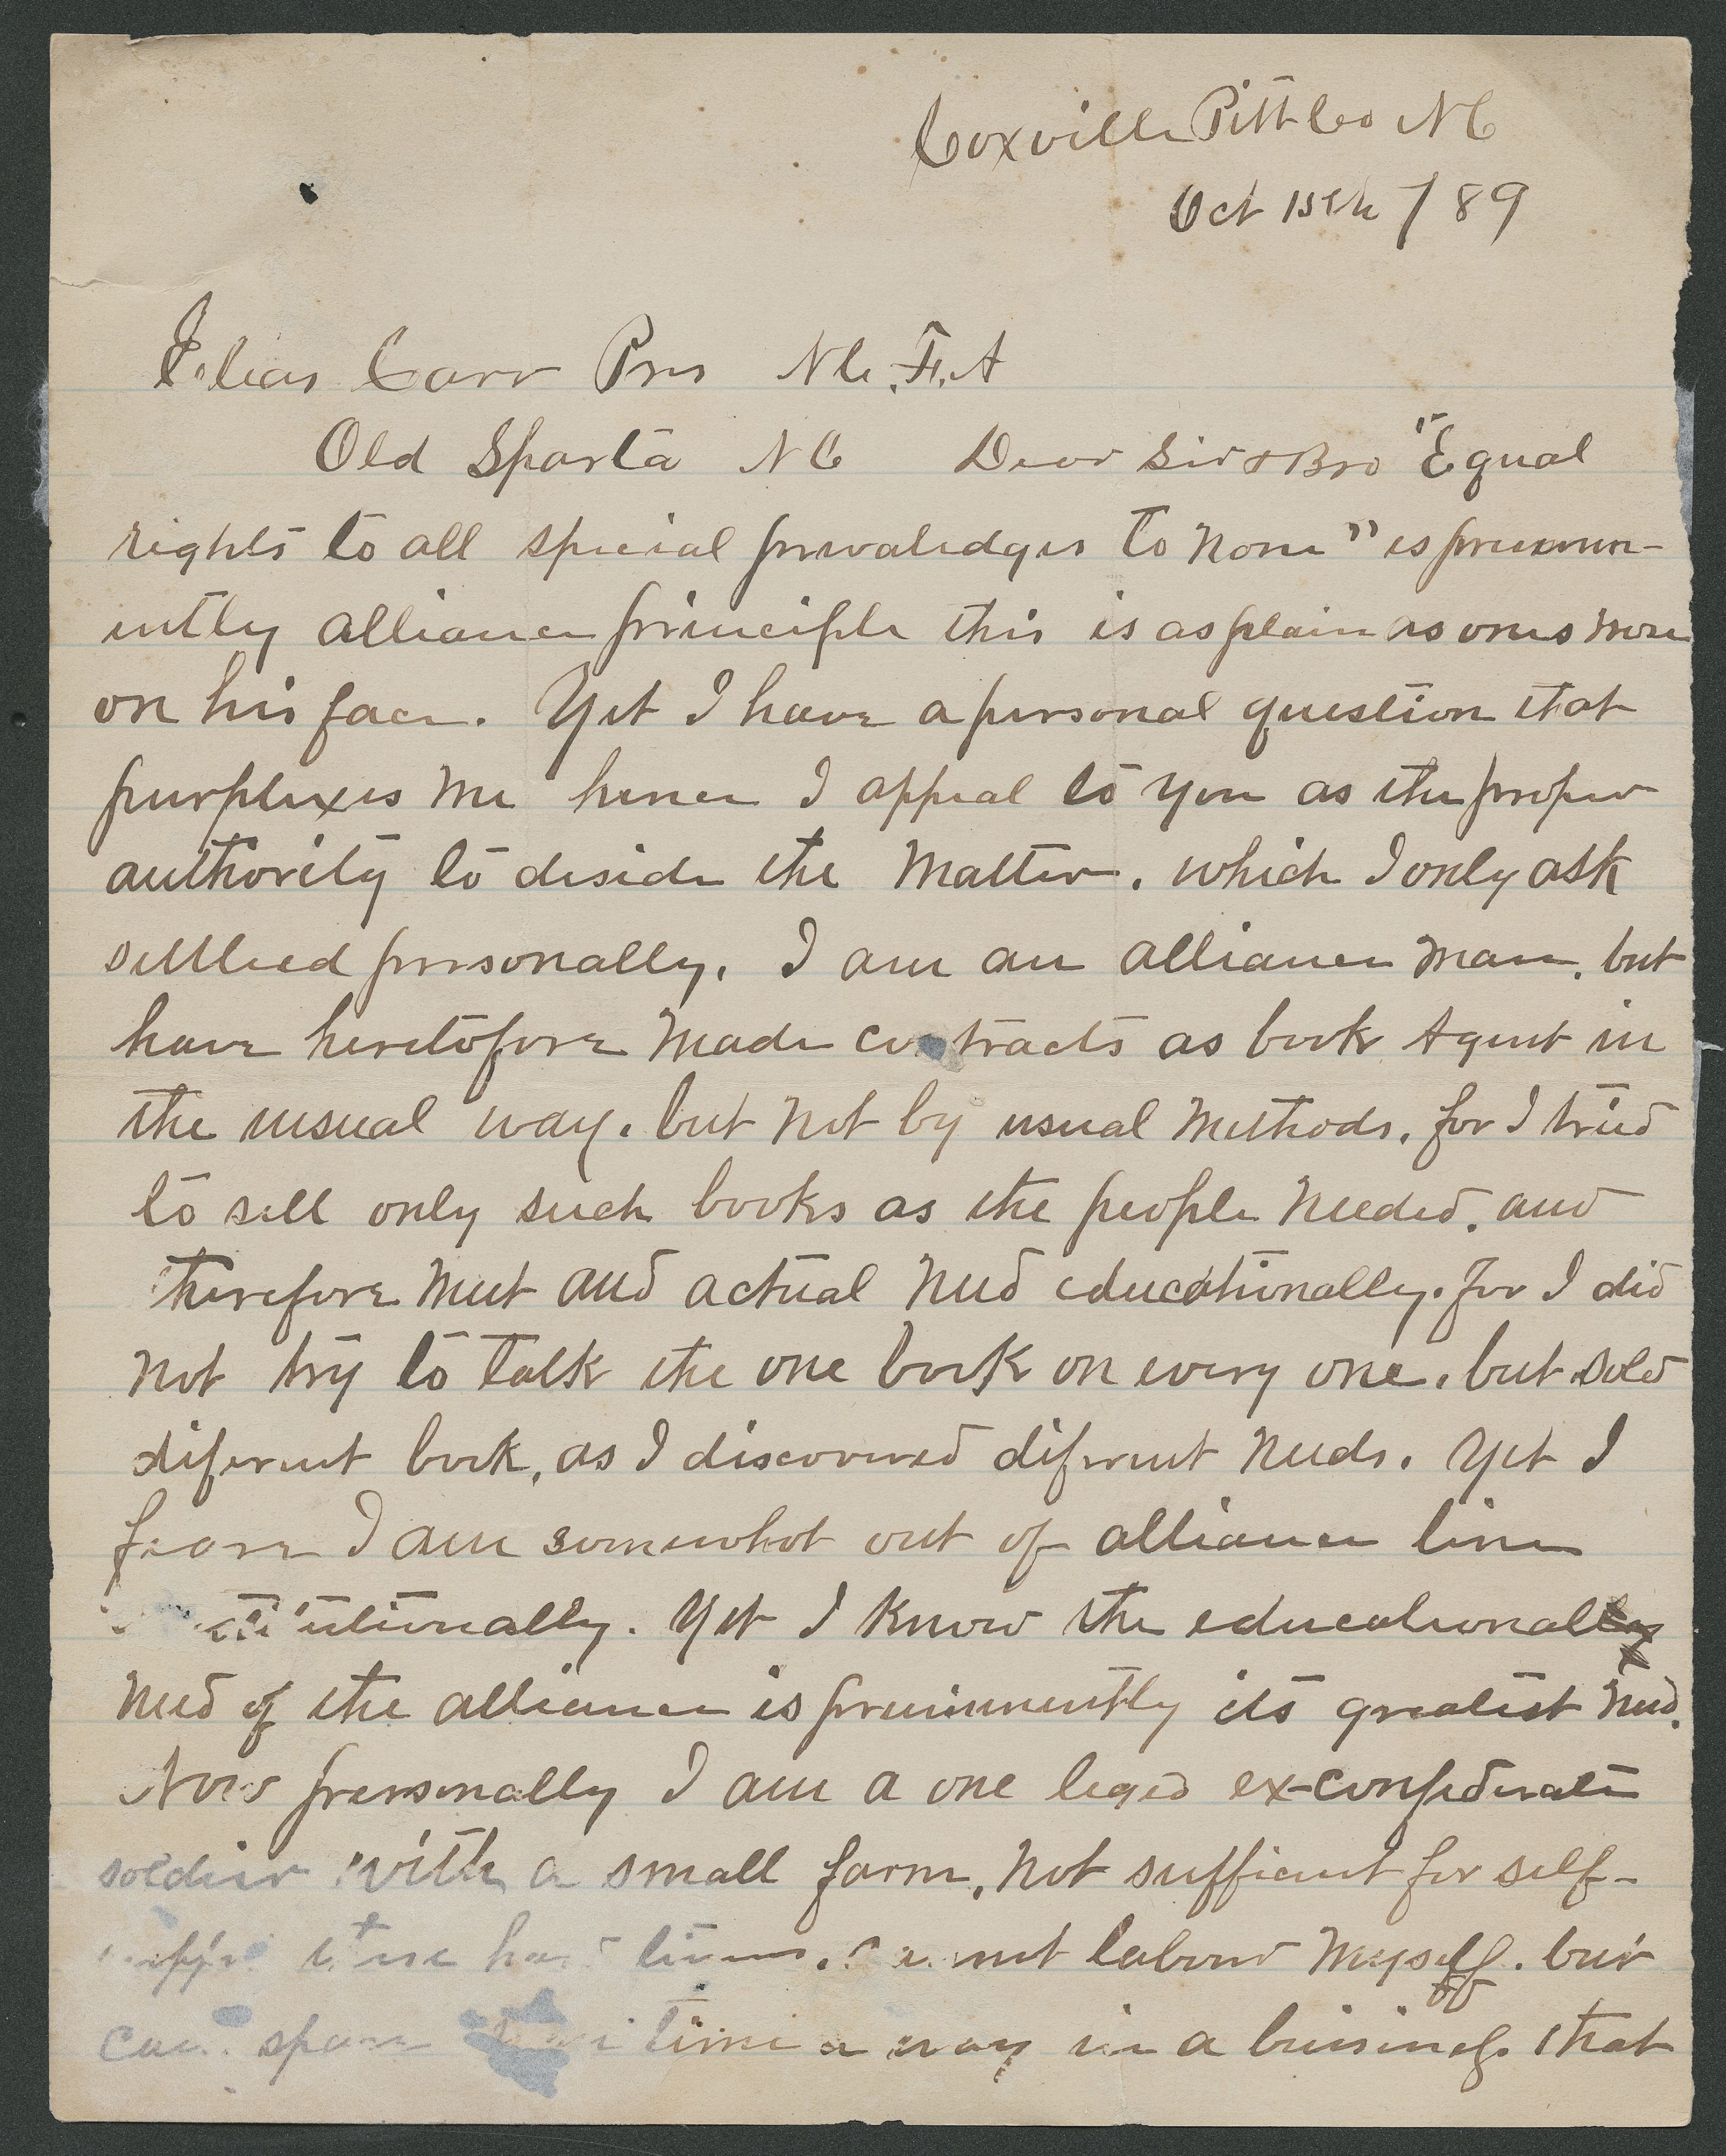 Coxville Pitt Co NC
Oct 15th / 89
Elias Carr Pres NC. F. A
Old Sparta NC Dear Sir & Bro "Equal
rights to all special privaledges to none" is preemin-
ently alliance principle this is as plain as ones nose
on his face. Yet I have a personal question that
purplexes me hence I appeal to you as the proper
authority to deside the matter. which I only ask
settleed personally. I am an alliance man. but
have heretofore made contracts as book Agent in
the usual way. but not by usual methods. for I tried
to sell only such books as the people needed. and
therefore meet and actual need educationally. for I did
not try to talk the one book on every one. but sold
diferent book, as I discovered diferent needs. Yet I
feare I am somewhat out of alliance line
Yet I know the educational
need of the alliance is preeminently its greatest need.
Now presonally I am a one leged ex-confederate
soldier with a small farm, not sufficient for self-
these hard times. cannot labour myself. but
can spare time away in a business that